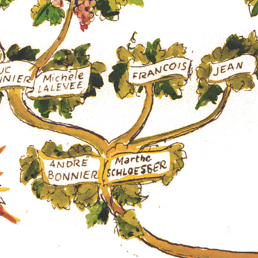 UC
NIER
Michèle
LALEVÉE
FRANCOIS
JEAN
ANDRÉ
BONNIER
Marthe
SCHLOESSER